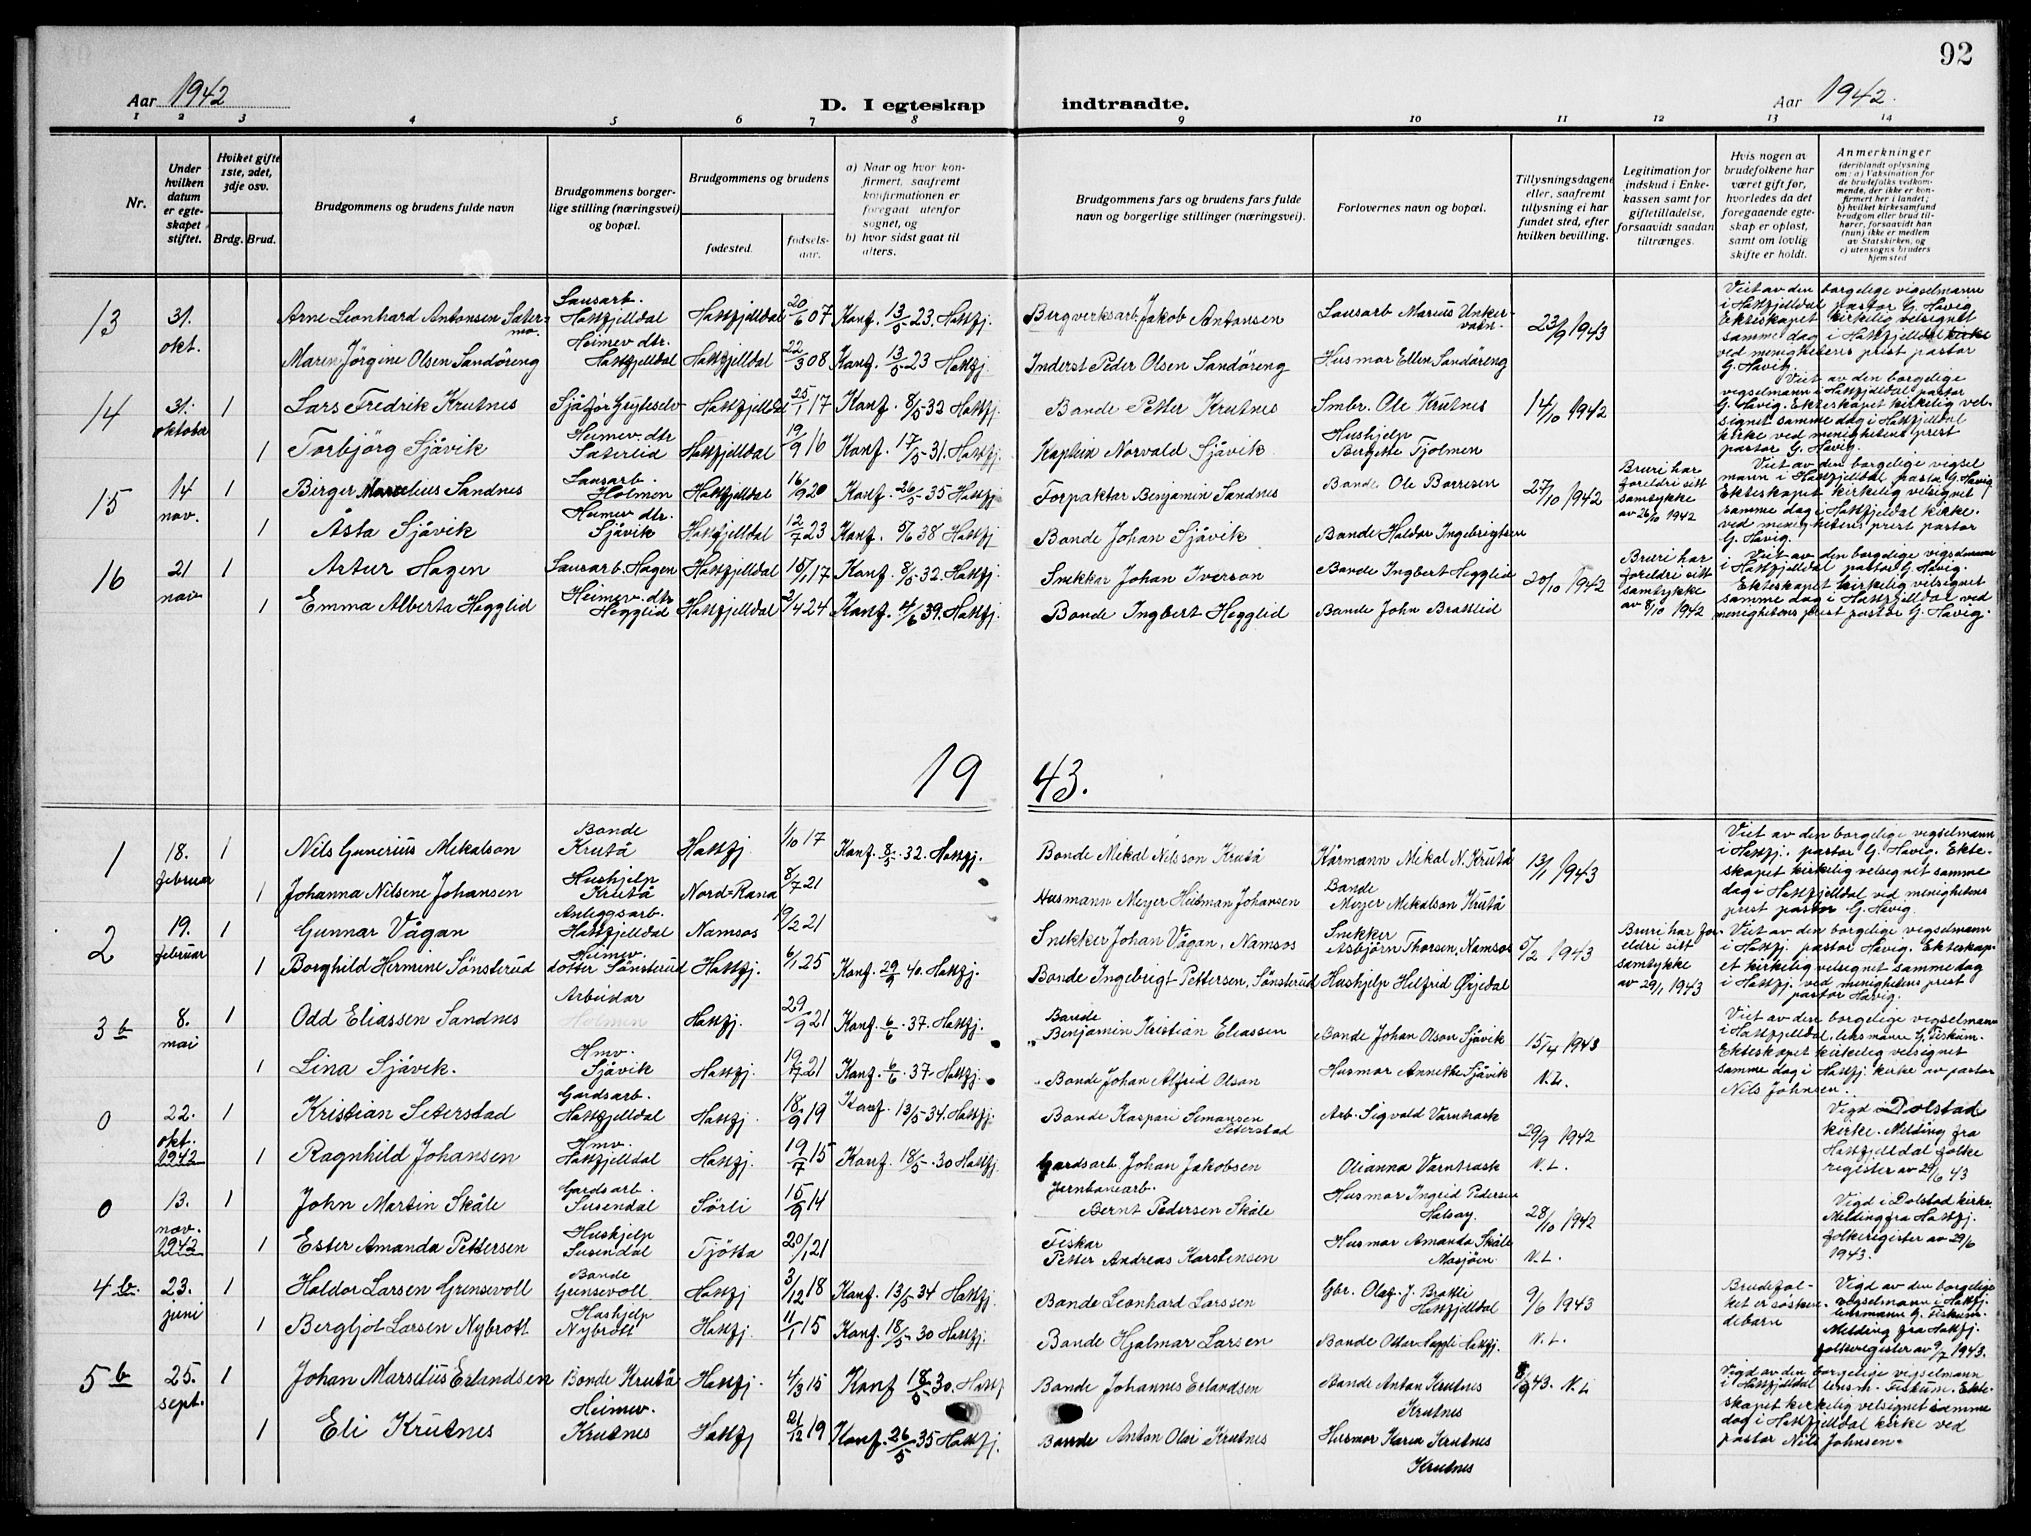 92
Aar 1942
D. I egteskap indtraadte.
Aar 1942.
1 2 3 4 5 6 7 8 9 10 11 12 13 14
Nr.
Under hvilken datum er egteskapet stiftet.
Hvilket gifte 1ste, 2det, 3dje osv.
Brdg. Brud.
Brudgommens og brudens fulde navn
Brudgommens borgerlige stilling (næringsvei) og bopæl.
Brudgommens og brudens
fødested.
fødselsaar.
a) Naar og hvor konfirmert, saafremt konfirmationen er foregaat utenfor sognet, og
b) hvor sidst gaat til alters.
Brudgommens fars og brudens fars fulde navn og borgerlige stillinger (næringsvei).
Forlovernes navn og bopæl.
Tillysningsdagene eller, saafremt tillysning ei har fundet sted, efter hvilken bevilling.
Legitimation for indskud i Enkekassen samt for giftetilladelse, forsaavidt saadan tiltrænges.
Hvis nogen av brudefolkene har været gift før, hvorledes da det foregaaende egteskap er opløst, samt om lovlig skifte er holdt.
Anmerkninger
(deriblandt oplysning om: a) Vaksination for de brudefolks vedkommende, der ikke er konfirmert her i landet; b) hvilket kirkesamfund brudgom eller brud tilhører, forsaavidt han (hun) ikke er medlem av Statskirken, og c) utensogns bruders hjemsted
13 31. okt. Arne Leonhard Antonsen Sætermo. Lausarb. Hattfjelldal Hattfjelldal 20/6 07 Konf. 13/5 23. Hattfj. Bergverksarb. Jakob Antonsen Lausarb Marius Unkervatn. 23/9 1943
Maren Jörgine Olsen Sandöreng Heimev dtr. Hattfjelldal Hattfjelldal 22/3 08 Konf. 13/5 23 Hattfj. Inderst Peder Olsen Sandöreng Husmor Ellen Sandöreng
Viet av den borgelige vigselmann i Hattfjelldal pastor G. Havig. Ekteskapet kirkelig velsignet samme dag i Hattfjelldal kirke ved menighetens prest pastor G. Havig.
14 31. oktober 1 Lars Fredrik Krutnes Sjåfør Hattfjelldal 25/1 17 Konf. 8/5 32 Hattfj. Bonde Petter Krutnes Smbr. Ole Krutnes 14/10 1942
1 Torbjörg Sjåvik Heimev. dtr Sæterlid Hattfjelldal 19/9 16 Konf. 17/5 31. Hattfj. Kaptein Norvald Sjåvik Hushjelp Bergette Tjolmen
Viet av den borgelige vigselmann i Hattfjelldal pastor G. Havig. Ekteskapet kirkelig velsignet samme dag i Hattfjelldal kirke ved menighetens prest pastor G. Havig.
15 14 nov. 1 Berger Marselius Sandnes Lausarb. Holmen Hattfjelldal 16/9 20 Konf. 26/5 35 Hattfj Forpaktar Benjamin Sandnes Bonde Ole Børresen 27/10 1942 Bruri har foreldri sitt samtykke av 26/10 1942
1 Åsta Sjåvik Heimev. dtr. Sjåvik Hattfjelldal 12/7 23 Konf. 5/6 38 Hattfj Bonde Johan Sjåvik Bonde Haldor Ingebrigtsen
Viet av den borgelige vigselmann i Hattfjelldal pastor G. Havig Ekteskapet kirkelig velsignet samme dag i Hattfjelldal kirke. ved menighetens prest pastor G. Havig.
16 21 nov 1 Artur Hagen Lausarb. Hagen Hattfjelldal 15/1 17 Konf. 8/5 32. Hattfj. Snekker Johan Iverson Bonde Ingbert Hegglid 20/10 1942 Bruri har foreldri sitt samtykke av 8/10 1942
1 Emma Alberta Hegglid Heimev. dtr Hegglid Hattfjelldal 2/4 24 Konf. 4/6 39. Hattfj. Bonde Ingbert Hegglid Bonde John Brattlid
Viet av den borgelige vigselmann i Hattfjelldal pastor G. Havig. Ekteskapet kirkelig velsignet samme dag i Hattfjelldal ved menighetens prest pastor G. Havig.
19 43.
1 18. februar 1 Nils Gunerius Mikalson Bonde Krutå Hattfj 1/10 17 Konf. 8/5 32. Hattfj. Bonde Mikal Nilsson Krutå Kårmann Mikal N. Krutå 13/1 1943
1 Johanna Nilsene Johansen Hushjelp Krutå Nord-Rana 8/7 21 Husmann Meyer Heitman Johansen Bonde Meyer Mikalson Krutå
Viet av den borgelige vigselmann i Hattfj. pastor G. Havig. Ekteskapet kirkelig velsignet samme dag i Hattfjelldal ved menighetens prest pastor G. Havig.
2 19. februar 1 Gunnar Vågan Anleggsarb. Hattfjelldal Namsos 19/2 21 Snekker Johan Vågan, Namsos Snekker Asbjørn Thorsen, Namsos 5/2 1943 Bruri har foreldri sitt samtykke av 29/1 1943
1 Borghild Hermine Sönsterud Heimev. dotter Sönsterud Hattfj. 6/1 25 Konf. 29/9 40. Hattfj. Bonde Ingebrigt Pettersen, Sönsterud Hushjelp Helfrid Öyjedal
Viet av den borgelige vigselmann i Hattfj. pastor Havig. Ekteskapet kirkelig velsignet samme dag i Hattfj. ved menighetens prest pastor Havig.
3 b 8. mai 1 Odd Eliassen Sandnes Arbeidar Holmen Hattfj. 29/9 21 Konf. 6/6 37. Hattfj. Bonde Benjamin Kristian Eliassen Bonde Johan Olson Sjåvik 15/4 1943
1 Lina Sjåvik. Hmv. Sjåvik Hattfj. 19/7 21 Konf. 6/6 37. Hattfj. Bonde Johan Alfrid Olson Husmor Annette Sjåvik N.L.
Viet av den borgelige vigselmann i Hattfjelldal, lensmann G. Fiskum. Ekteskapet kirkelig velsignet samme dag i Hattfj kirke av pastor Nils Johnsen.
0 22. okt. 1942 1 Kristian Seterstad Gårdsarb. Hattfjelldal Hattfj. 18/9 19 Konf. 13/5 34. Hattfj Bonde Kaspari Simonsen Seterstad Arb. Sigvald Varntresk 29/9 1942
1 Ragnhild Johansen Hmv. Hattfjelldal Hattfj. 19/7 15 Konf. 18/5 30 Hattfj. Gardsarb. Johan Jakobsen Olianna Varntresk N.L.
Vigd i Dolstad kirke. Melding fra Hattfjelldal folkeregister av 29/6 43
0 13. nov. 1942 1 John Martin Skåle Gardsarb. Susendal Sörli 15/9 14 Jernbanearb. Bernt Pedersen Skåle Husmor Ingrid Pedersen Halsøy. 28/10 1942
1 Ester Amanda Pettersen Hushjelp Susendal Tjötta 20/1 21 Fiskar Petter Andreas Karstensen Husmor Amanda Skåle Mosjöen N.L.
Vigd i Dolstad kirke. Melding fra Hattfj. folkeregister av 29/6 1943.
4 b. 23. juni 1 Haldor Larsen Grensevoll Bonde Grensevoll Hattfj 3/12 18 Konf. 13/5 34 Hattfj. Bonde Leonhard Larssen Gbr. Olaf J. Brattli Hattfjelldal 9/6 1943 Brudefolket er søskendebarn
1 Bergljot Larsen Nybrott Hushjelp Nybrott Hattfj. 11/1 15 Konf. 18/5 30 Hattfj. Bonde Hjalmar Larsen Bonde Ottar Heggli Hattfj. N.L.
Vigd av den borgelige vigselmann i Hattfj. lensmann G. Fiskum. Melding fra Hattfj. folkeregister av 9/7 1943.
5 b 25. sept. 1 Johan Marselius Erlandsen Bonde Krutå Hattfj. 4/3 15 Konf 18/5 30. Hattf Bonde Johannes Erlandsen Bonde Anton Krutnes Krutnes 8/9 43. N.L
1 Eli Krutnes Heimev. Krutnes Hattfj 21/12 19 Konf. 26/5 35 Hattfj. Bonde Anton Olai Krutnes Husmor Karen Krutnes Krutnes
Vigd av den borgelige vigselmann i Hattfjelldal lensm. Fiskum. Ekteskapet kirkelig velsignet samme dag i Hattfjelldal kirke ved pastor Nils Johnsen.